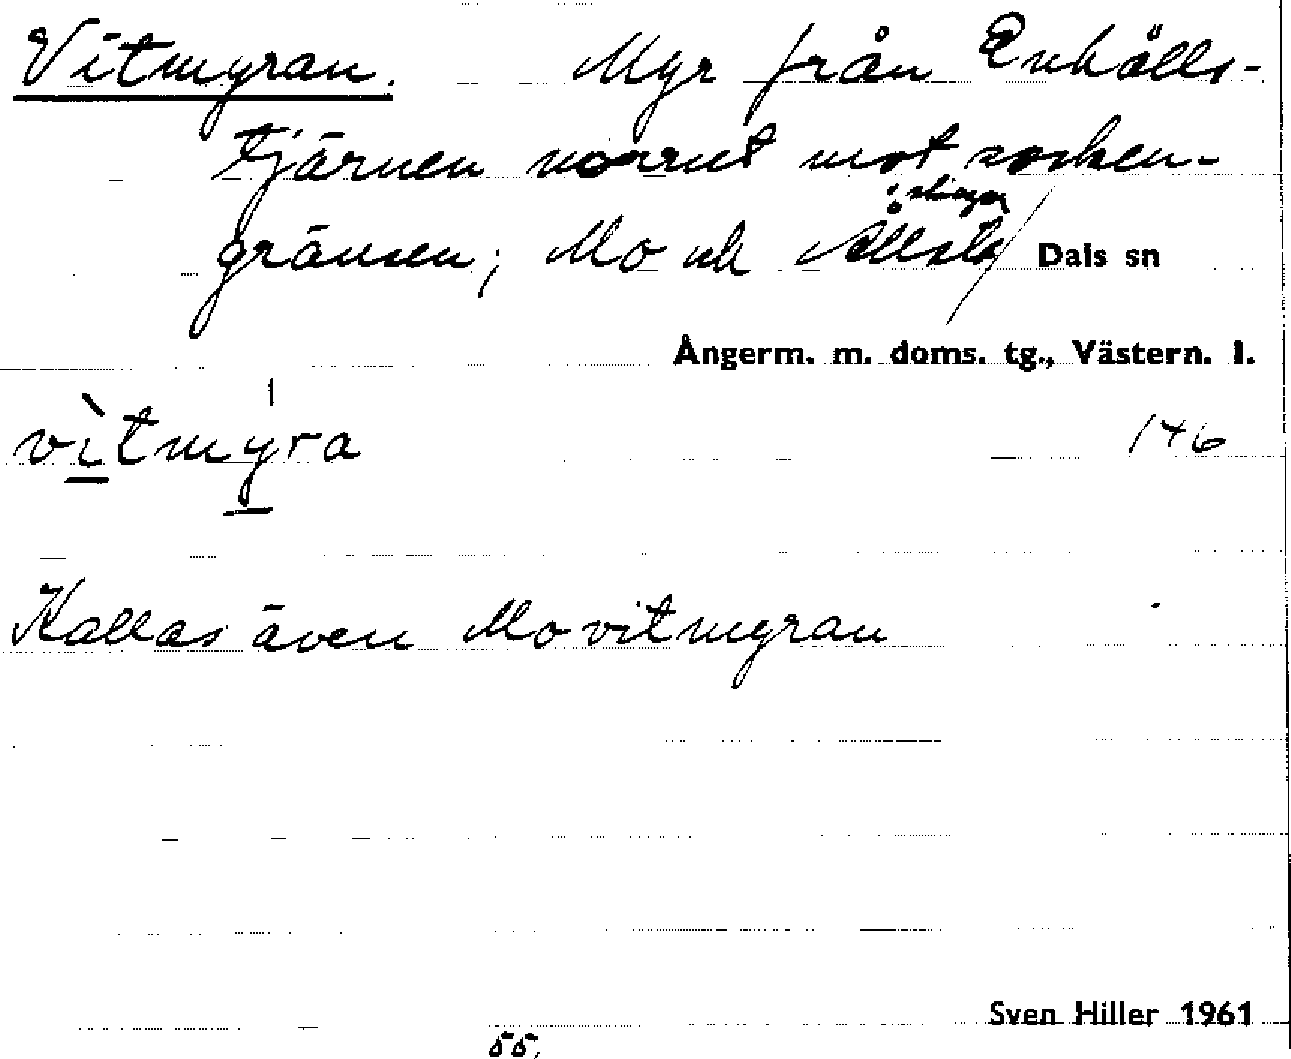 Vitmyran. Myr från Enhälls-
tjärnen norrut mot socken-
gränsen; Mo och Dals sn
Ångerm. m. doms. tg., Västern. l.
vìtmýra 146
Kallas även Movitmyran
Sven Hiller 1961
55.